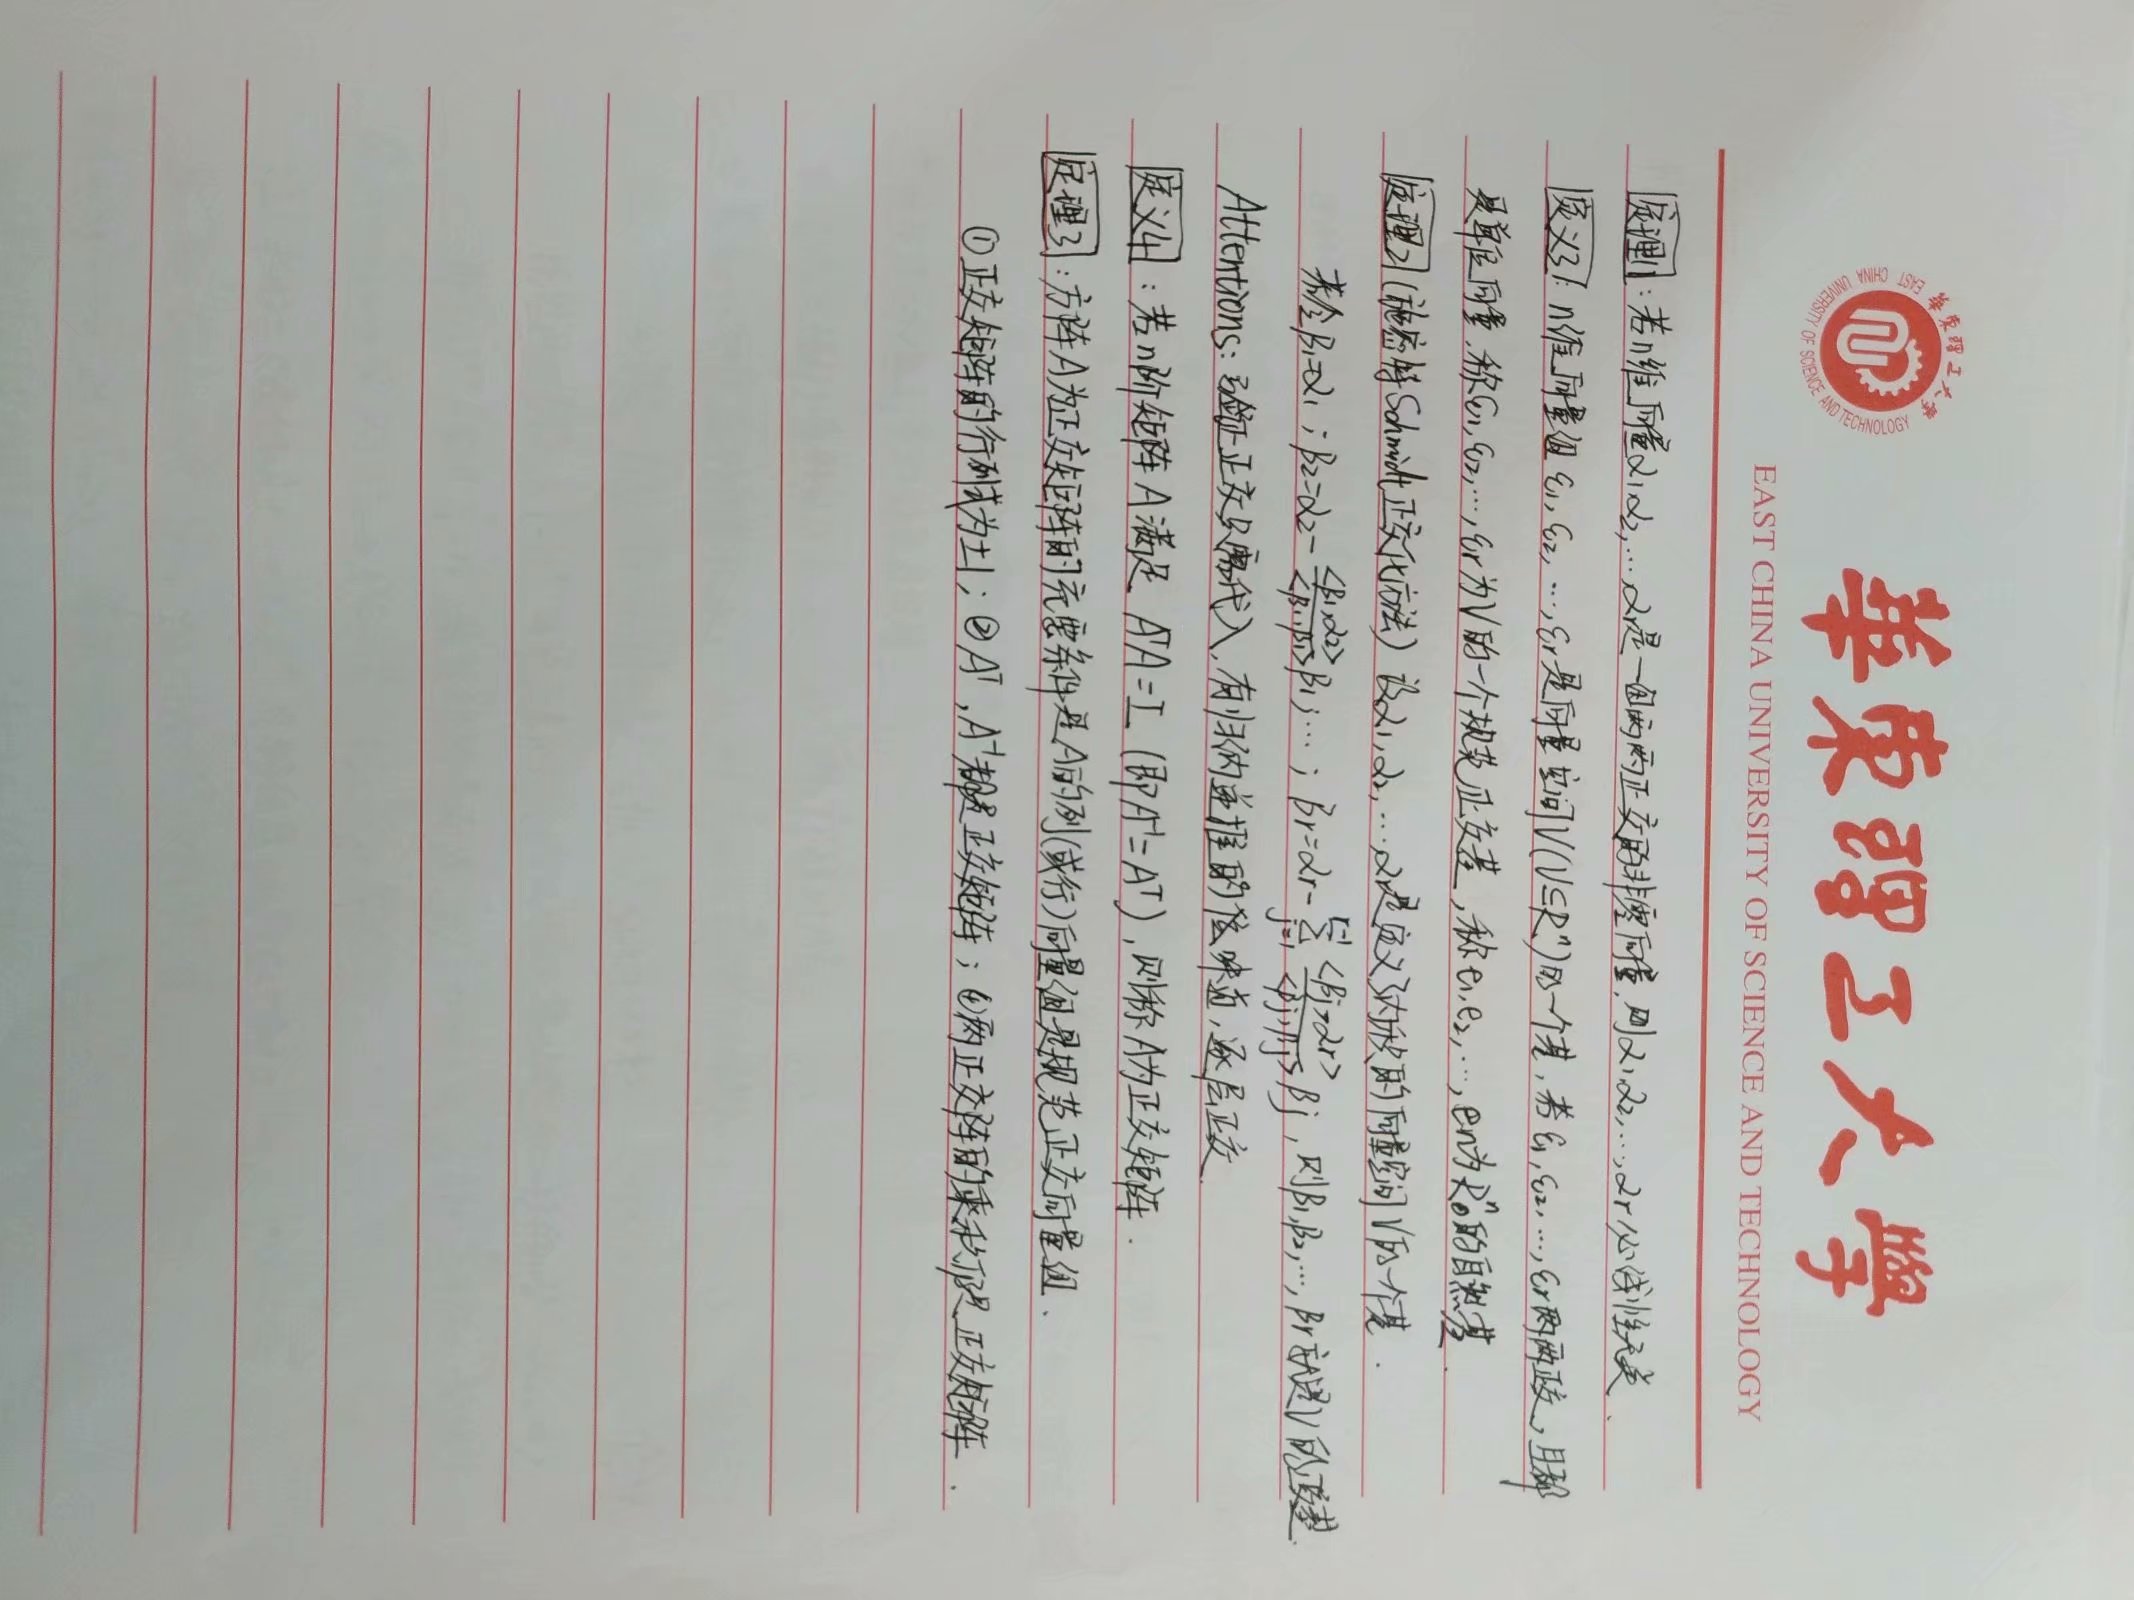 華東理工大學
EAST CHINA UNIVERSITY OF SCIENCE AND TECHNOLOGY
華東理工大學
EAST CHINA UNIVERSITY OF SCIENCE AND TECHNOLOGY
定理1：若n维向量α₁,α₂,…αr是一组两两正交的非零向量,则α₁,α₂,…,αr必线性无关.
定义3：n维向量组ε₁,ε₂,…,εr是向量空间V(V⊆Rⁿ)的一个基,若ε₁,ε₂,…,εr两两正交,且都
是单位向量,称ε₁,ε₂,…,εr为V的一个规范正交基,称e₁,e₂,…,en为Rⁿ的自然基.
定理2(施密特Schmidt正交化方法) 设α₁,α₂,…αr是定义讨论的向量空间V的一个基.
若令β₁=α₁;β₂=α₂-<β₁,α₂>/<β₁,β₁>β₁;…;βr=αr-∑_{j=1}^{r-1}<βj,αr>/<βj,βj>βj,则β₁,β₂,…,βr就是V的正交基.
Attentions:验正交只需代入,有归纳递推的味道,逐层正交
定义4：若n阶矩阵A满足 AᵀA=I (即A⁻¹=Aᵀ),则称A为正交矩阵.
定理3：方阵A为正交矩阵的充要条件是A的列(或行)向量组是规范正交向量组.
①正交矩阵的行列式为±1;②Aᵀ,A⁻¹都是正交矩阵;③两正交阵的乘积仍是正交矩阵.